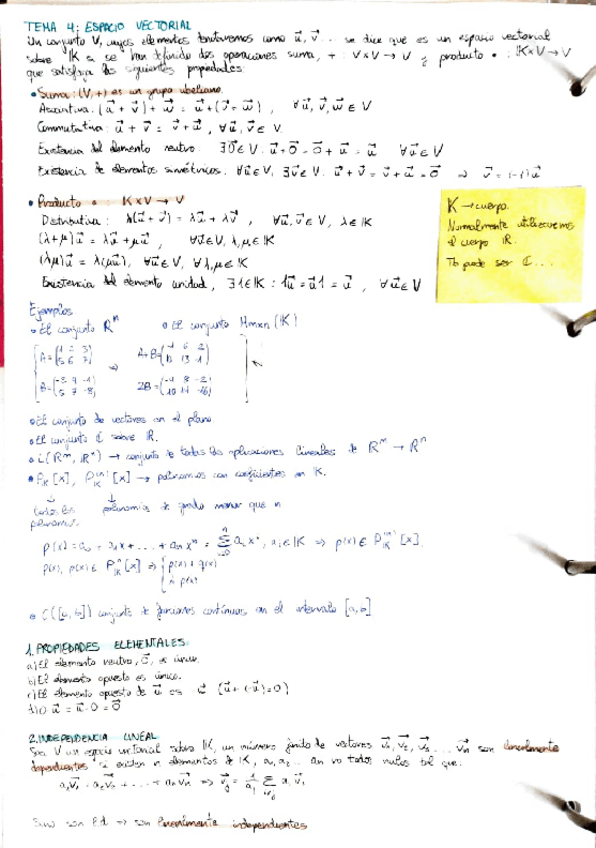 TEMA 4: ESPACIO VECTORIAL
Un conjunto V, cuyos elementos denotaremos como u⃗, v⃗... se dice que es un espacio vectorial
sobre K si se han definido dos operaciones suma, + : V×V → V y producto • : K×V → V
que satisfaga las siguientes propiedades:
• Suma: (V,+) es un grupo abeliano.
Asociativa: (u⃗ + v⃗) + w⃗ = u⃗ + (v⃗ + w⃗), ∀u⃗, v⃗, w⃗ ∈ V
Conmutativa: u⃗ + v⃗ = v⃗ + u⃗, ∀u⃗, v⃗ ∈ V.
Existencia del elemento neutro: ∃0⃗ ∈ V: u⃗ + 0⃗ = 0⃗ + u⃗ = u⃗ ∀u⃗ ∈ V
Existencia de elementos simétricos: ∀u⃗ ∈ V, ∃v⃗ ∈ V: u⃗ + v⃗ = v⃗ + u⃗ = 0⃗ ⇒ v⃗ = (-1)u⃗
• Producto • : K×V → V
Distributiva: λ(u⃗ + v⃗) = λu⃗ + λv⃗, ∀u⃗, v⃗ ∈ V, λ ∈ K
(λ+μ)u⃗ = λu⃗ + μu⃗, ∀u⃗ ∈ V, λ, μ ∈ K
(λμ)u⃗ = λ(μu⃗), ∀u⃗ ∈ V, ∀λ, μ ∈ K
Existencia del elemento unidad, ∃1 ∈ K : 1u⃗ = u⃗1 = u⃗, ∀u⃗ ∈ V
K → cuerpo.
Normalmente utilizaremos
el cuerpo R.
Tb puede ser C...
Ejemplos
• El conjunto Rⁿ
• El conjunto Mmxn (K)
• El conjunto de vectores en el plano
• El conjunto C sobre R.
• L(Rᵐ, Rⁿ) → conjunto de todas las aplicaciones lineales de Rᵐ → Rⁿ
• P_K[x], P_K⁽ⁿ⁾[x] → polinomios con coeficientes en K.
todos los polinomios
polinomios de grado menor que n
• C([a,b]) conjunto de funciones continuas en el intervalo [a,b]
1. PROPIEDADES ELEMENTALES
a) El elemento neutro, 0⃗, es único.
b) El elemento opuesto es único.
c) El elemento opuesto de u⃗ es (u⃗ + (-u⃗) = 0)
d) 0 u⃗ = u⃗·0 = 0⃗
2. INDEPENDENCIA LINEAL
Sea V un espacio vectorial sobre K, un número finito de vectores v⃗₁, v⃗₂, v⃗₃... v⃗n son linealmente
dependientes si existen n elementos de K, a₁, a₂... an no todos nulos tal que:
son linealmente independientes